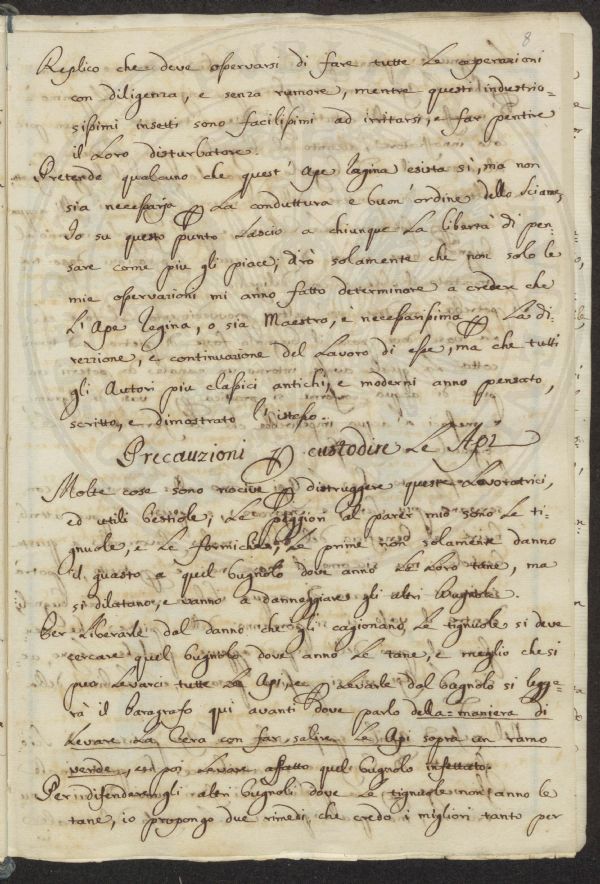 8
Replico che deve osservarsi di fare tutte le operazioni
con diligenza, e senza rumore, mentre questi industrio=
sissimi insetti sono facilissimi ad irritarsi, e far pentire
il loro disturbatore.
Pretende qualcuno che quest' Ape Regina esista sì, ma non
sia necessaria p la conduttura e buon' ordine dello sciame;
Io su questo punto lascio a chiunque la libertà di pen=
sare come piu gli piace; dirò solamente che non solo le
mie osservazioni mi anno fatto determinare a credere che
L' Ape Regina, o sia Maestro, e necessarissima p la di=
rezzione, e continuazione del lavoro di esse, ma che tutti
gli Autori piu classici antichi, e moderni anno pensato,
scritto, e dimostrato l' istesso.
Precauzioni p custodire le Api
Molte cose sono nocive p distruggere queste lavoratrici,
ed utili bestiole; le peggiori al parer mio sono le ti=
gnuole, e le formiche; le prime non solamente danno
il guasto a quel bugnolo dove anno le loro tane, ma
si dilatano, e vanno a danneggiare gli altri bugnoli.
Per liberarle dal danno che gli cagionano le tignuole si deve
cercare quel bugnolo dove anno le tane, e meglio che si
puo levarci tutte le Api, e p levarle dal bugnolo si legge=
rà il Paragrafo qui avanti dove parlo della maniera di
levare la cera con far salire le Api sopra un ramo
verde, e poi levare affatto quel bugnolo infettato.
Per difendere gli altri bugnoli dove le tignuole non anno le
tane, io propongo due rimedi, che credo i migliori tanto per